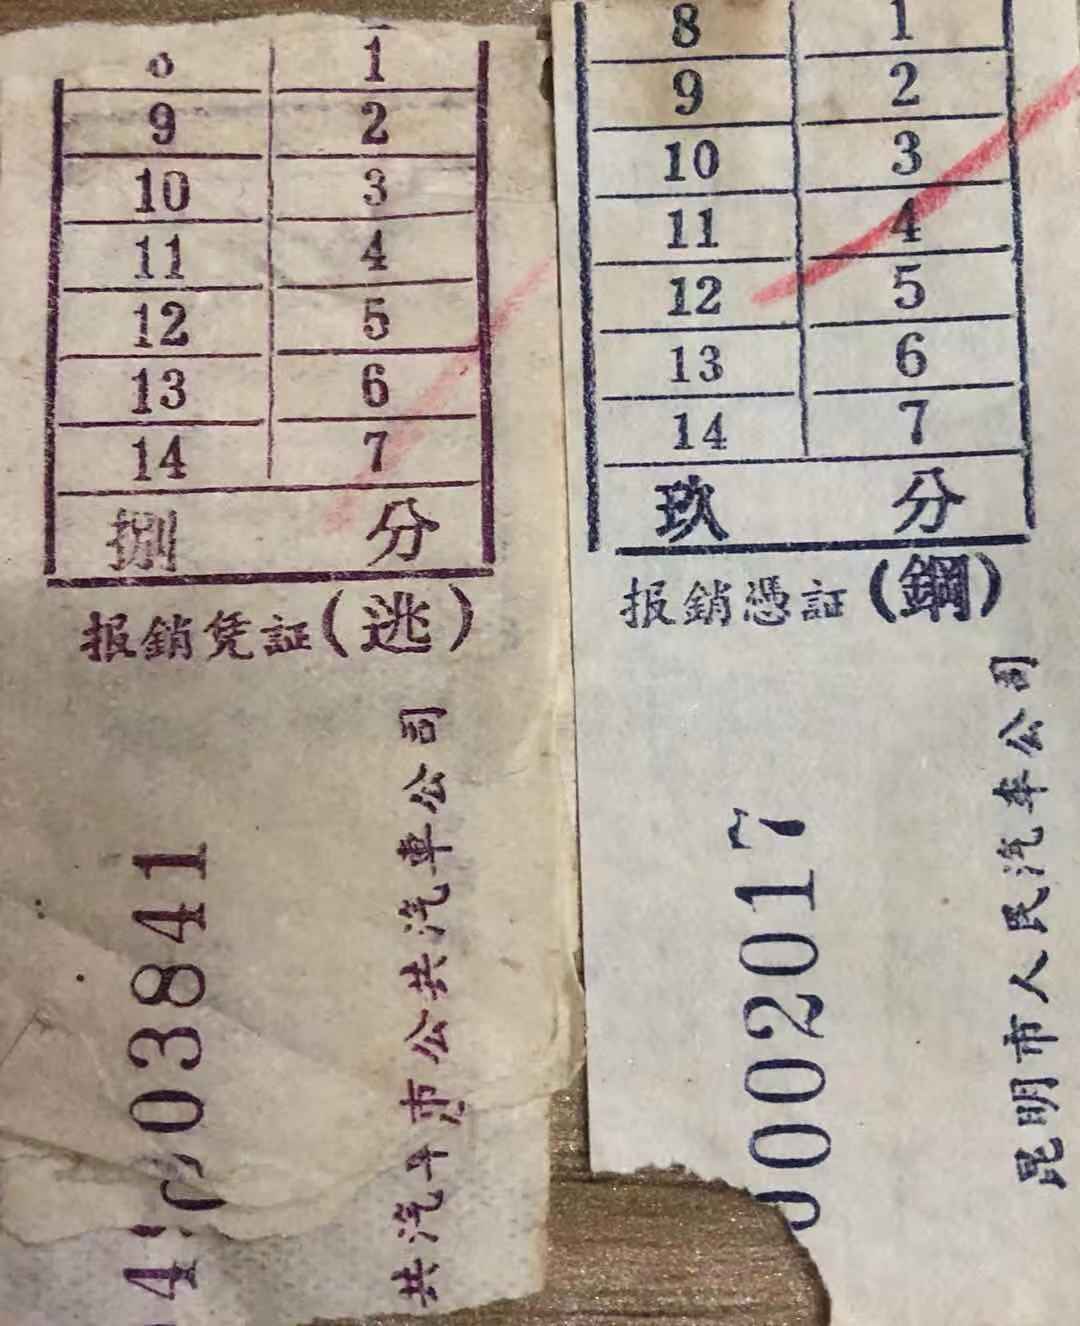 1
9 2
10 3
11 4
12 5
13 6
14 7
捌 分
报銷凭証(逃)
03841
共汽车市公共汽車公司
8 1
9 2
10 3
11 4
12 5
13 6
14 7
玖 分
报銷憑証(鋼)
002017
昆明市人民汽车公司